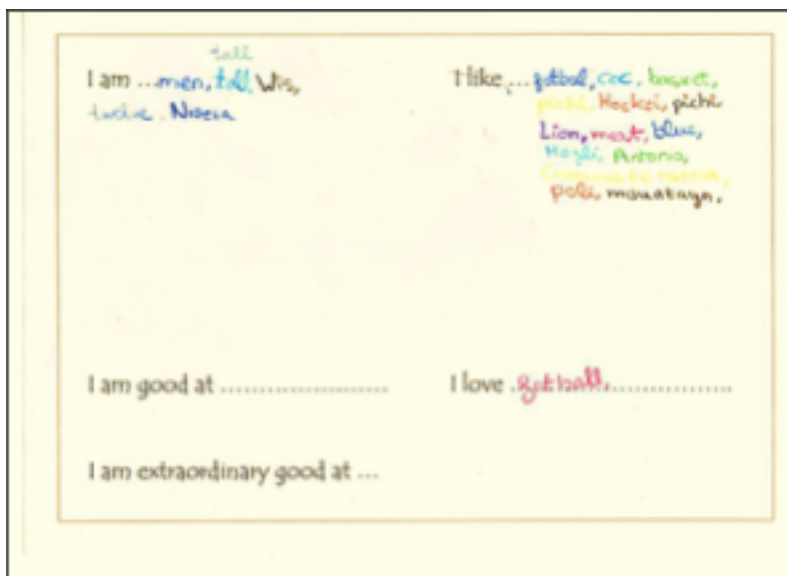 tall
I am ... men, tall, Wis,
twelve.
I like ... futbol, coc, basquet,
pichi, Hockei, pichi
Lion, meat, blue,
Antonio,
poli, mountayn.
I am good at ........................
I love . futball, .................
I am extraordinary good at ...